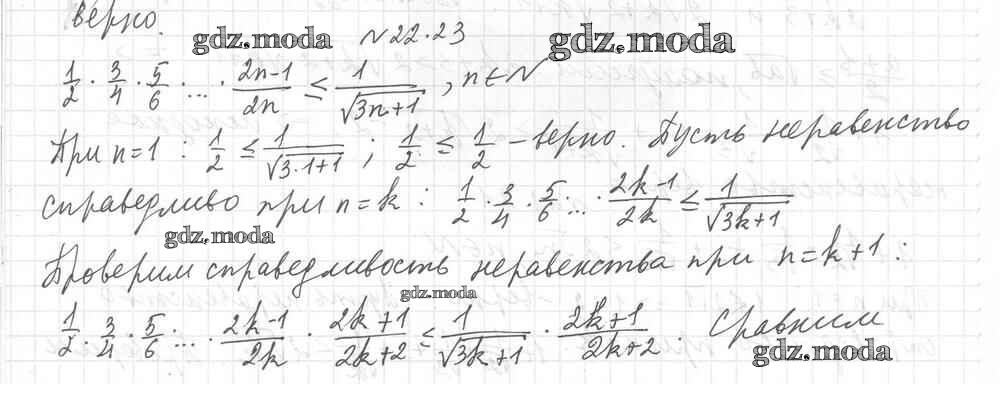 верно.
gdz.moda №22.23 gdz.moda
1/2 · 3/4 · 5/6 · ... · (2n-1)/2n ≤ 1/√(3n+1), n∈N
При n=1 : 1/2 ≤ 1/√(3·1+1) ; 1/2 ≤ 1/2 – верно. Пусть неравенство
справедливо при n=k : 1/2 · 3/4 · 5/6 ... · (2k-1)/2k ≤ 1/√(3k+1)
gdz.moda
Проверим справедливость неравенства при n=k+1 :
gdz.moda
1/2 · 3/4 · 5/6 · ... · (2k-1)/2k · (2k+1)/(2k+2) ≤ 1/√(3k+1) · (2k+1)/(2k+2). Сравним
gdz.moda